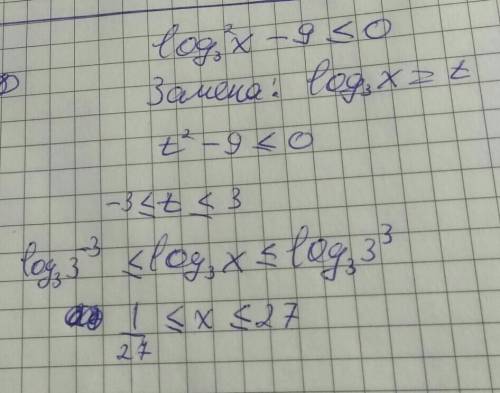 log₃²x − 9 ≤ 0
Замена: log₃x = t
t² − 9 ≤ 0
−3 ≤ t ≤ 3
log₃3⁻³ ≤ log₃x ≤ log₃3³
1/27 ≤ x ≤ 27